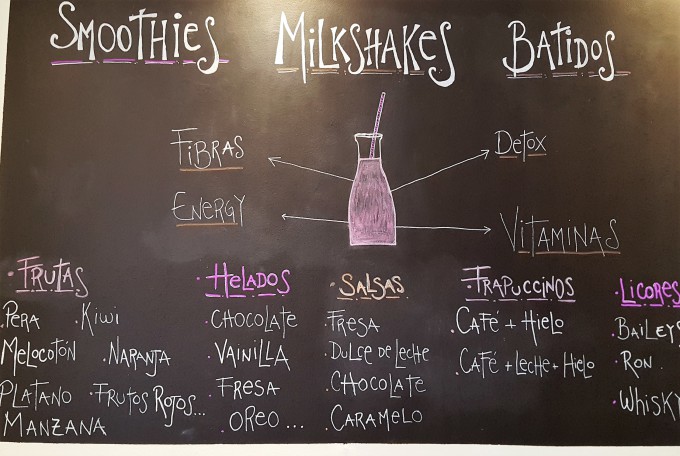 SMOOTHIES MILKSHAKES BATIDOS
FIBRAS Detox
ENERGY VITAMINAS
·FRUTAS
·PERA ·KIWI
MELOCOTÓN ·NARANJA
PLATANO ·FRUTOS ROJOS...
MANZANA
·HELADOS
·CHOCOLATE
·VAINILLA
·FRESA
·OREO ...
·SALSAS
FRESA
·DULCE DE LECHE
·CHOCOLATE
CARAMELO
·FRAPUCCINOS
·CAFÉ + HIELO
·CAFÉ + LECHE + HIELO
·LICORES
·BAILEYS
·RON
·WHISKY